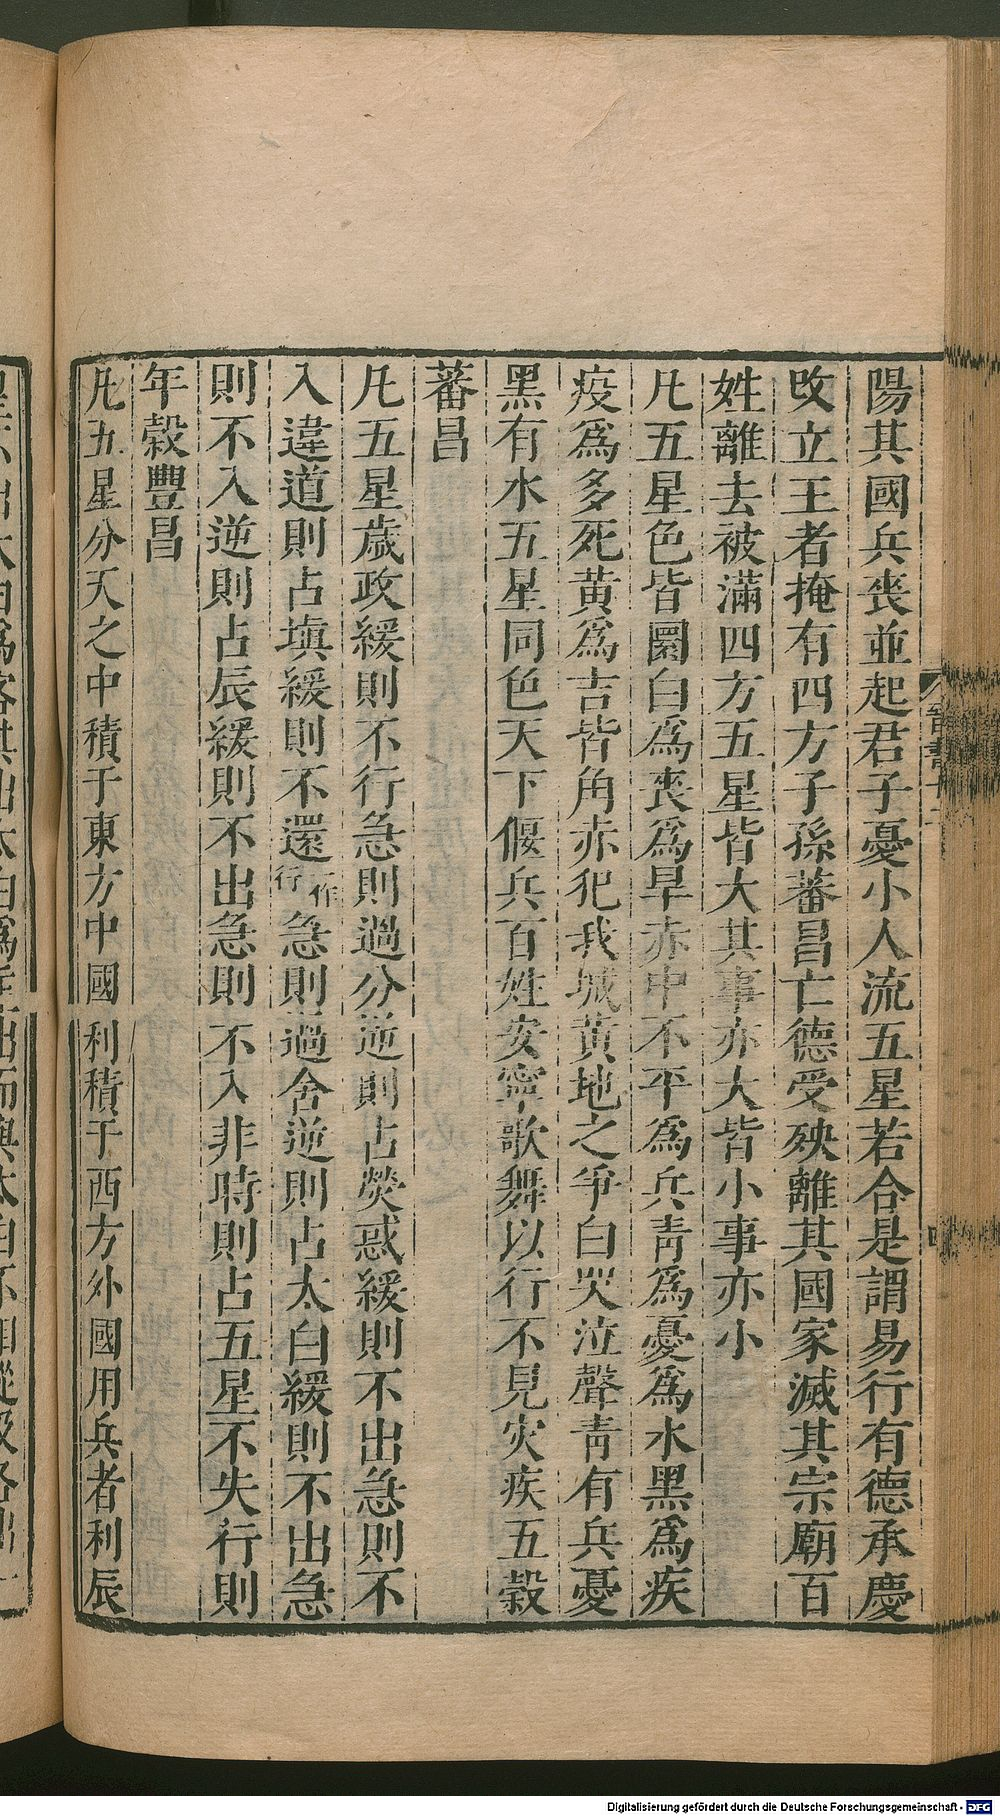 陽其國兵喪並起君子憂小人流五星若合是謂易行有德承慶
改立王者掩有四方子孫蕃昌亡德受殃離其國家滅其宗廟百
姓離去被滿四方五星皆大其事亦大皆小事亦小
凡五星色皆圜白爲喪爲旱赤中不平爲兵靑爲憂爲水黑爲疾
疫爲多死黃爲吉皆角赤犯我城黃地之爭白哭泣聲靑有兵憂
黑有水五星同色天下偃兵百姓安寧歌舞以行不見灾疾五穀
蕃昌
凡五星歲政緩則不行急則過分逆則占熒惑緩則不出急則不
入違道則占塡緩則不還一作行急則過舍逆則占太白緩則不出急
則不入逆則占辰緩則不出急則不入非時則占五星不失行則
年穀豐昌
凡五星分天之中積于東方中國利積于西方外國用兵者利辰
Digitalisierung gefördert durch die Deutsche Forschungsgemeinschaft - DFG